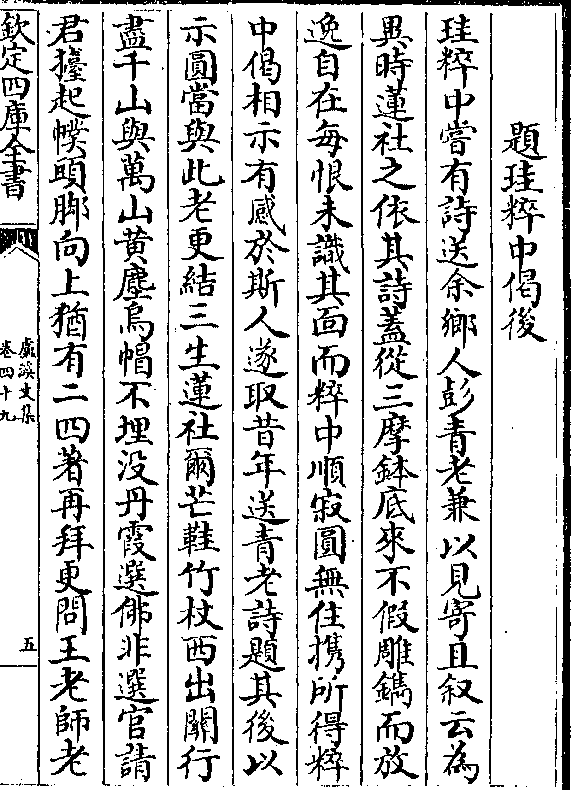 題珪粹中偈後
珪粹中嘗有詩送余鄉人彭青老兼以見寄且叙云為
異時蓮社之依其詩蓋從三摩鉢底來不假雕鐫而放
逸自在每恨未識其面而粹中順寂圓無住携所得粹
中偈相示有感於斯人遂取昔年送青老詩題其後以
示圓當與此老更結三生蓮社爾芒鞋竹杖西出關行
盡千山與萬山黄塵烏帽不埋没丹霞選佛非選官請
君擡起幞頭脚向上猶有二四著再拜更問王老師老
欽定四庫全書
盧溪文集
卷四十九
五